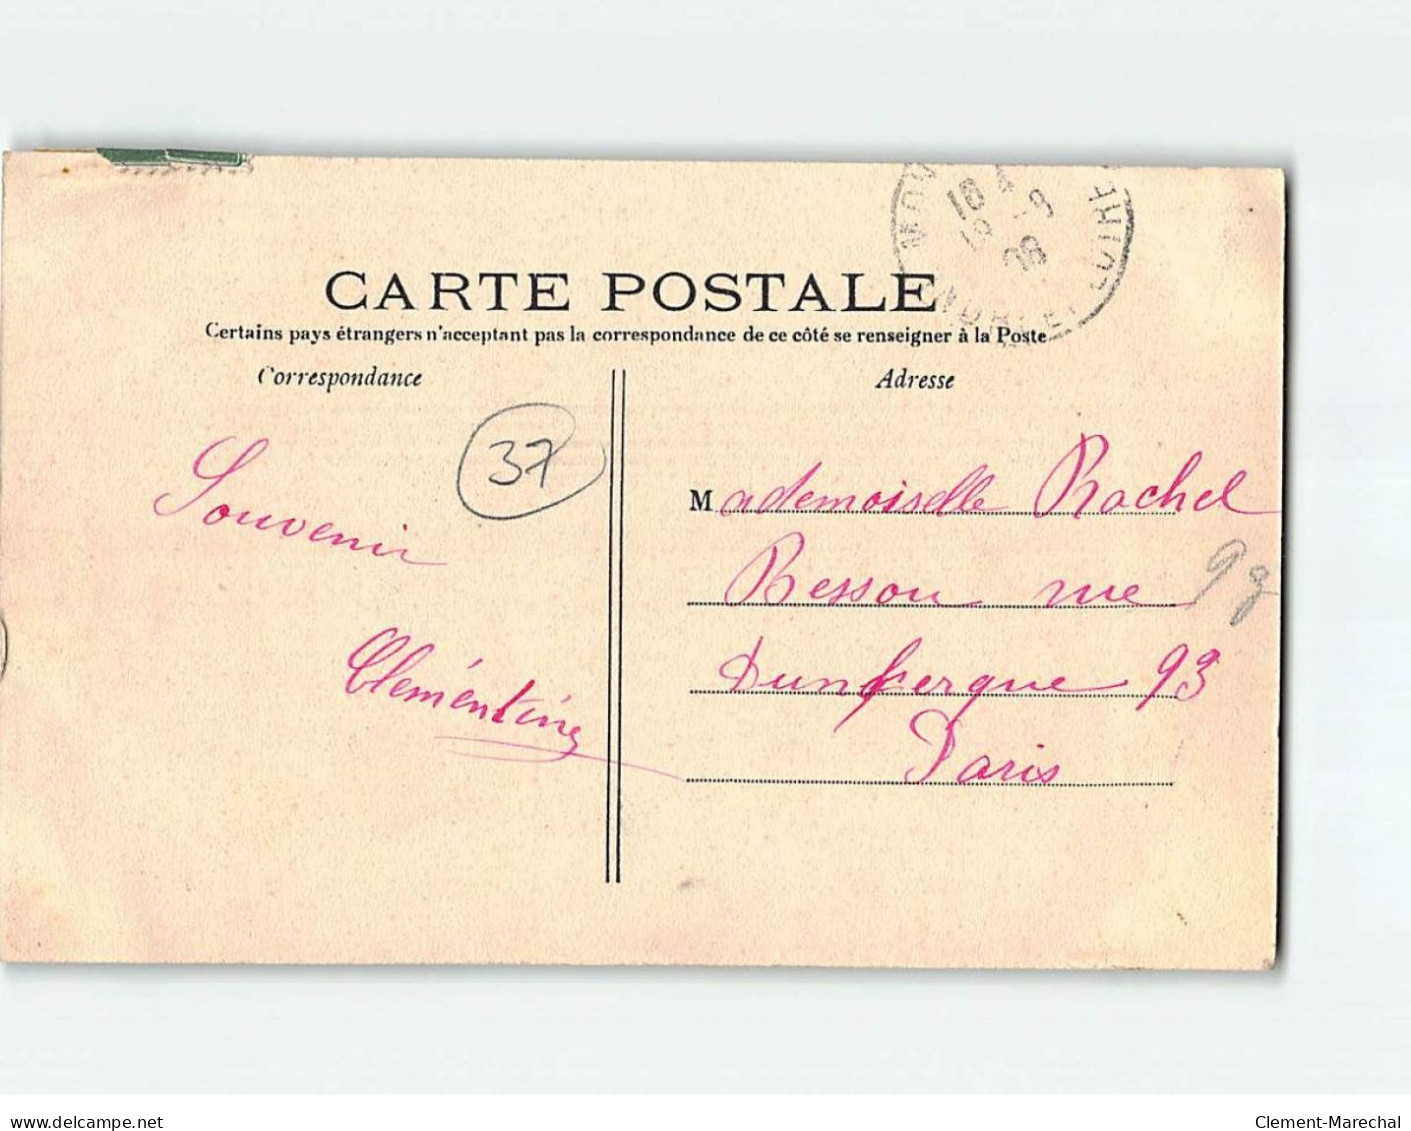 CARTE POSTALE
Certains pays étrangers n'acceptent pas la correspondance de ce côté se renseigner à la Poste
Correspondance
Adresse
37
Souvenir
Clémentine
Mademoiselle Rachel
Besson rue
Dunkerque 93
Paris
98
INDRE-ET-LOIRE
18
08
www.delcampe.net
Clement-Marechal